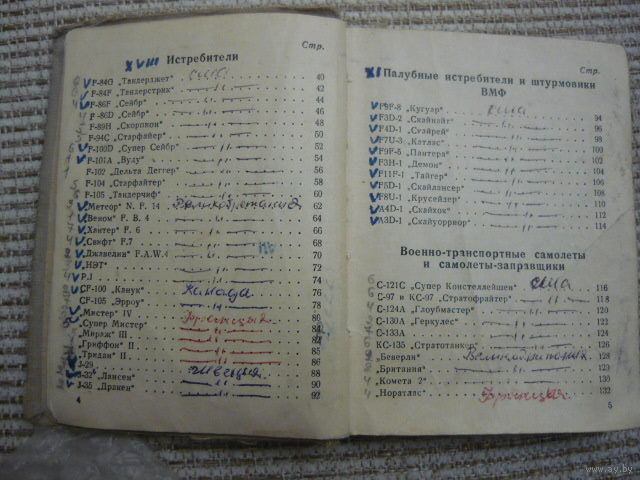 XVIII Истребители
Стр.
F-84G „Тандерджет" США 40
F-84F „Тандерстрик" 42
F-86F „Сейбр" 44
F-86D „Сейбр" 46
F-89H „Скорпион" 48
F-94C „Старфайер" 50
F-100D „Супер Сейбр" 52
F-101A „Вуду" 54
F-102 „Дельта Деггер" 56
F-104 „Старфайтер" 58
F-105 „Тандерчиф" 60
„Метеор" N. F. 14 Великобритания 62
„Веном" F. B. 4 64
„Хантер" F. 6 66
„Свифт" F.7 68
„Джавелин" F.A.W.4 70
„НЭТ" 72
P.1 74
CF-100 „Канук" Канада 76
CF-105 „Эрроу" 78
„Мистер" IV Франция 80
„Супер Мистер" 84
„Мираж" III 84
„Гриффон" II 85
„Тридан" II 86
J-29 Швеция 88
J-32 „Лансен" 90
J-35 „Дракен" 92
4
XI Палубные истребители и штурмовики
ВМФ
Стр.
F9F-8 „Кугуар" США 94
F3D-2 „Скайнайт" 96
F4D-1 „Скайрей" 98
F7U-3 „Катлэс" 100
F9F-5 „Пантера" 102
F3H-1 „Демон" 104
F11F-1 „Тайгер" 106
F5D-1 „Скайлансер" 108
F8U-1 „Крусейдер" 110
A4D-1 „Скайхок" 112
A3D-1 „Скайуорриор" 114
Военно-транспортные самолеты
и самолеты-заправщики
C-121C „Супер Констеллейшен" США 116
C-97 и КС-97 „Стратофрайтер" 118
C-124A „Глоубмастер" 120
C-130A „Геркулес" 122
C-133A 124
КС-135 „Стратотанкер" 126
„Беверли" Великобритания 128
„Британия" 129
„Комета 2" 130
„Норатлас" Франция 132
5
www.ay.by